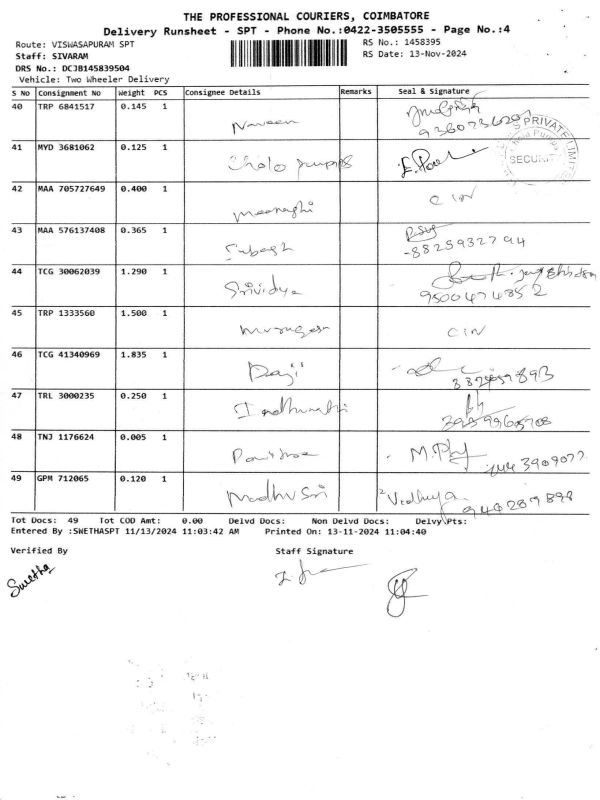 THE PROFESSIONAL COURIERS, COIMBATORE
Delivery Runsheet - SPT - Phone No.:0422-3505555 - Page No.:4
Route: VISWASAPURAM SPT
RS No.: 1458395
Staff: SIVARAM
RS Date: 13-Nov-2024
DRS No.: DCJB145839504
Vehicle: Two Wheeler Delivery
S No Consignment No Weight PCS Consignee Details Remarks Seal & Signature
40 TRP 6841517 0.145 1
Naveen
41 MYD 3681062 0.125 1
PRIVATE LIMITED
SECURITY
42 MAA 705727649 0.400 1
Meenaghi
43 MAA 576137408 0.365 1
Subash
8825932794
44 TCG 30062039 1.290 1
Srividya
9500474852
45 TRP 1333560 1.500 1
Murugesn
46 TCG 41340969 1.835 1
Raji
47 TRL 3000235 0.250 1
Indhumathi
48 TNJ 1176624 0.005 1
49 GPM 712065 0.120 1
Madhu Sri Vidhuya
Tot Docs: 49 Tot COD Amt: 0.00 Delvd Docs: Non Delvd Docs: Delvy\Pts:
Entered By :SWETHASPT 11/13/2024 11:03:42 AM Printed On: 13-11-2024 11:04:40
Verified By Staff Signature
Swetha